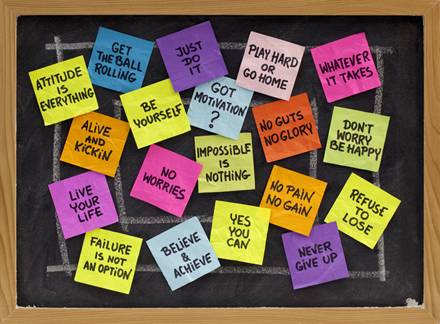 GET
THE BALL
ROLLING
JUST
DO IT
PLAY HARD
OR
GO HOME
WHATEVER
IT TAKES
ATTITUDE
IS
EVERYTHING
BE
YOURSELF
GOT
MOTIVATION
?
NO GUTS
NO GLORY
DON'T
WORRY
BE HAPPY
ALIVE
AND
KICKIN
NO
WORRIES
IMPOSSIBLE
IS
NOTHING
NO PAIN
NO GAIN
REFUSE
TO
LOSE
LIVE
YOUR
LIFE
FAILURE IS
NOT AN
OPTION
BELIEVE
&
ACHIEVE
YES
YOU
CAN
NEVER
GIVE UP